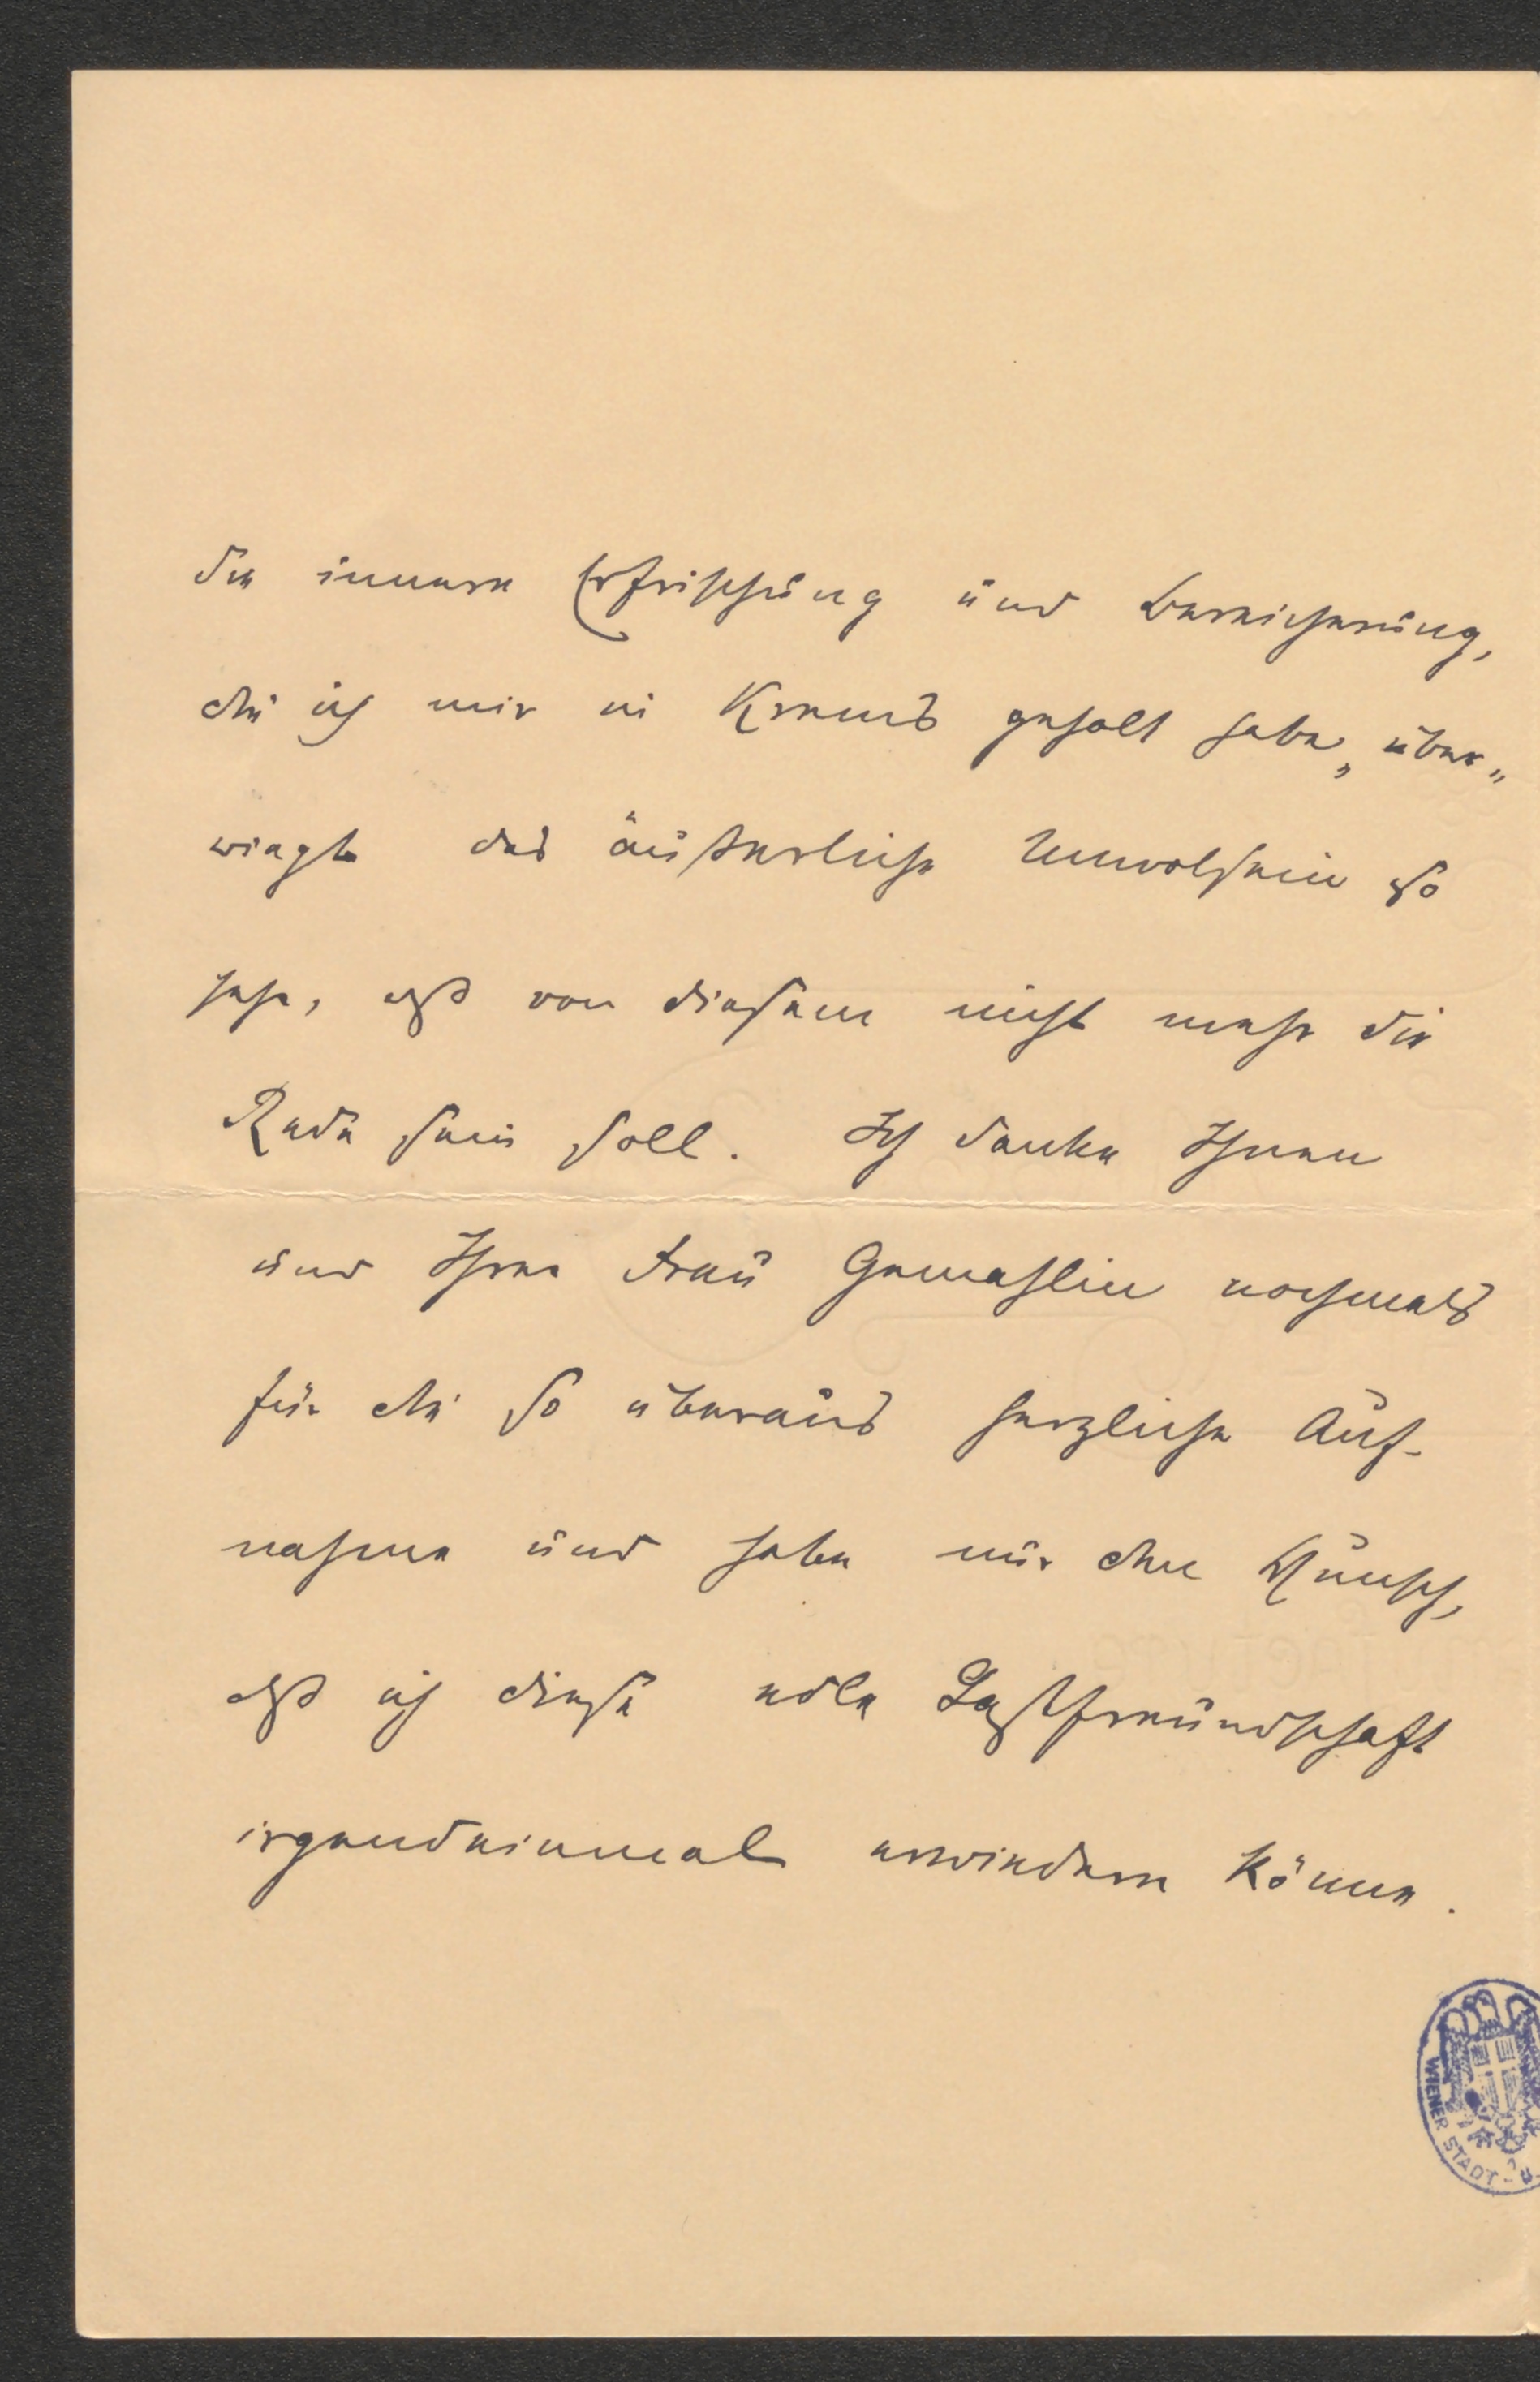 die innere Erfrischung und Bereicherung,
die ich mir in Krems geholt habe, über-
wiegt das äußerliche Unwolsein so
sehr, daß von diesem nicht mehr die
Rede sein soll. Ich danke Ihnen
und Ihrer Frau Gemahlin nochmals
für die so überaus herzliche Auf-
nahme und habe nur den Wunsch,
daß ich diese edle Gastfreundschaft
irgendeinmal erwiedern könne.
WIENER STADT- u.